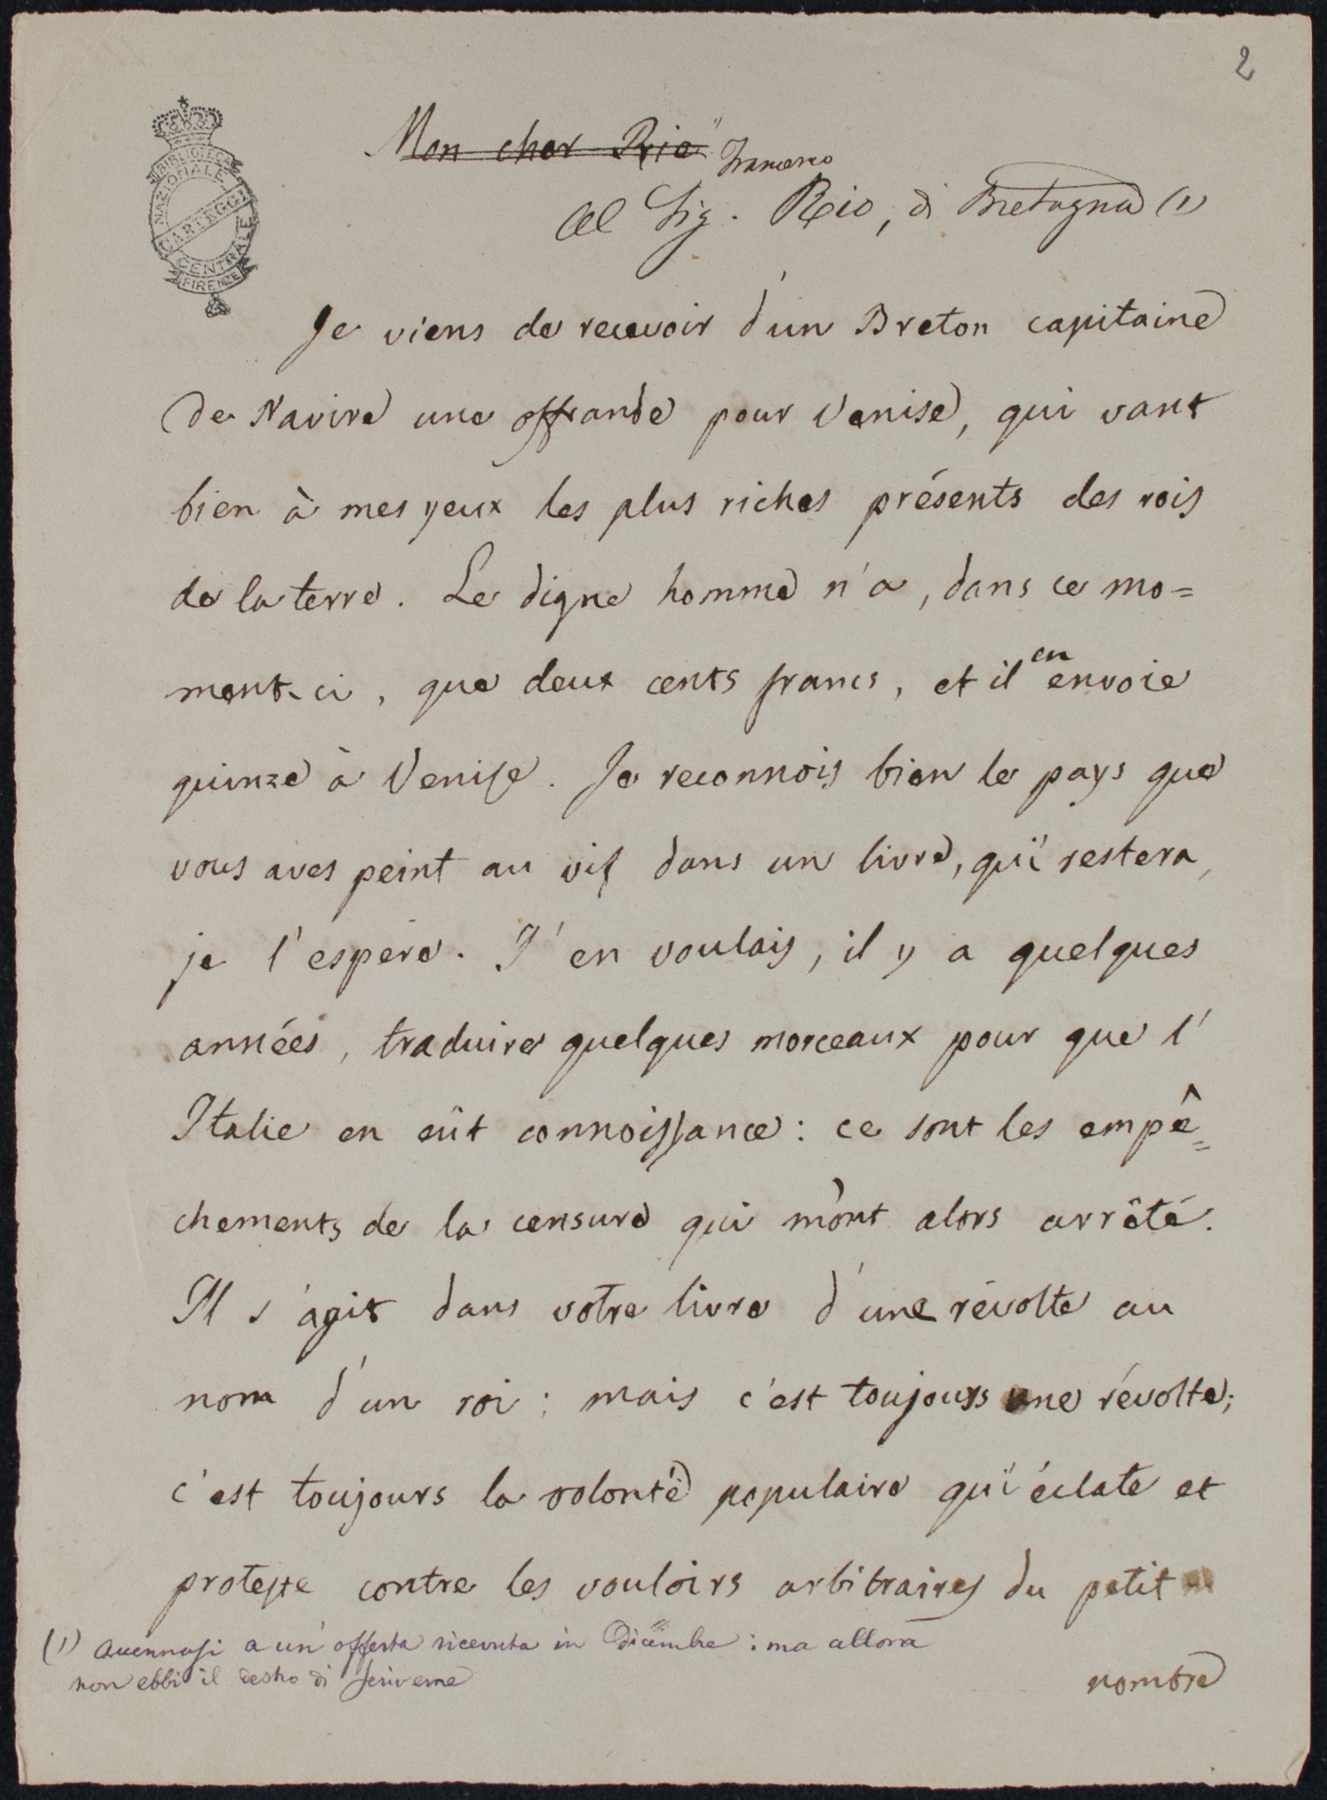 2
BIBLIOTECA
NAZIONALE
CARTEGGI
CENTRALE
FIRENZE
Mon cher Rio
Francesco
Al Sig. Rio, di Bretagna (1)
Je viens de recevoir d'un Breton capitaine
de Navire une offrande pour Venise, qui vaut
bien à mes yeux les plus riches présents des rois
de la terre. Le digne homme n'a, dans ce mo=
ment-ci, que deux cents francs, et il en envoie
quinze à Venise. Je reconnois bien le pays que
vous aves peint au vif dans un livre, qui restera,
je l'espère. J'en voulais, il y a quelques
années, traduire quelques morceaux pour que l'
Italie en eût connoissance: ce sont les empê=
chements de la censure qui m'ont alors arrêté.
Il s'agit dans votre livre d'une révolte au
nom d'un roi: mais c'est toujours une révolte;
c'est toujours la volonté populaire qui éclate et
proteste contre les vouloirs arbitraires du petit
(1) Accennasi a un' offerta ricevuta in Dicembre: ma allora
non ebbi il destro di scriverne
nombre